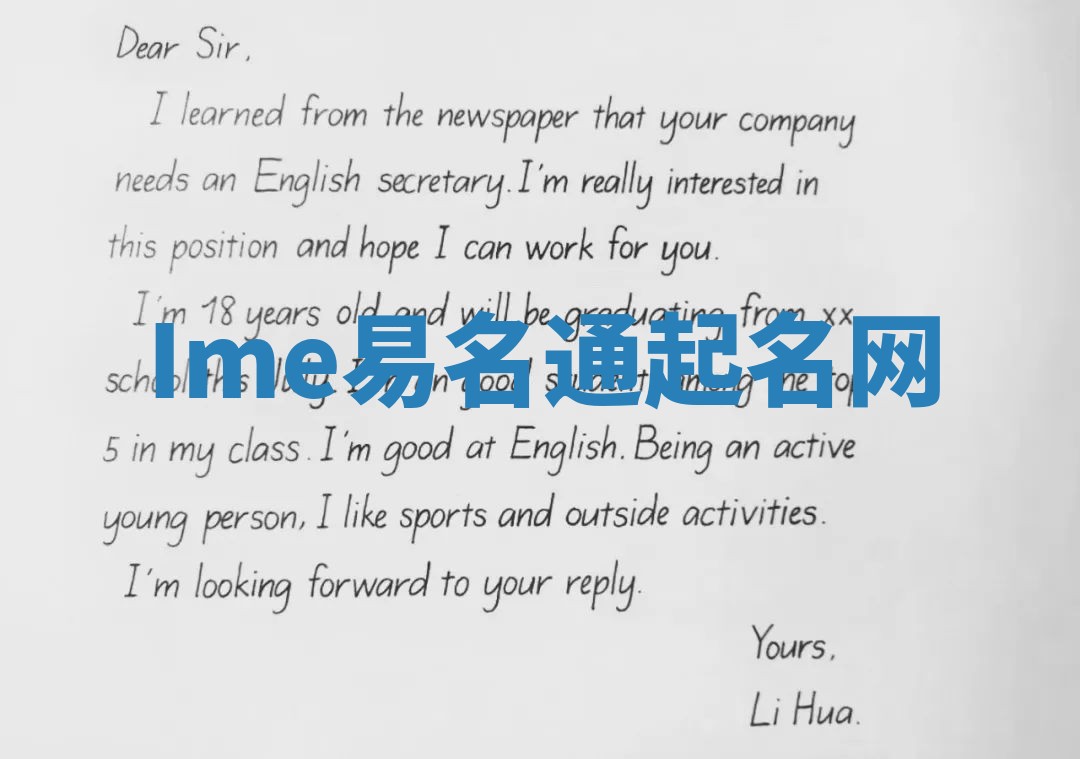 Dear Sir,
I learned from the newspaper that your company
needs an English secretary. I'm really interested in
this position and hope I can work for you.
I'm 18 years old and will be graduating from xx
Ime易名通起名网
school this July. I'm a good student among the top
5 in my class. I'm good at English. Being an active
young person, I like sports and outside activities.
I'm looking forward to your reply.
Yours,
Li Hua.